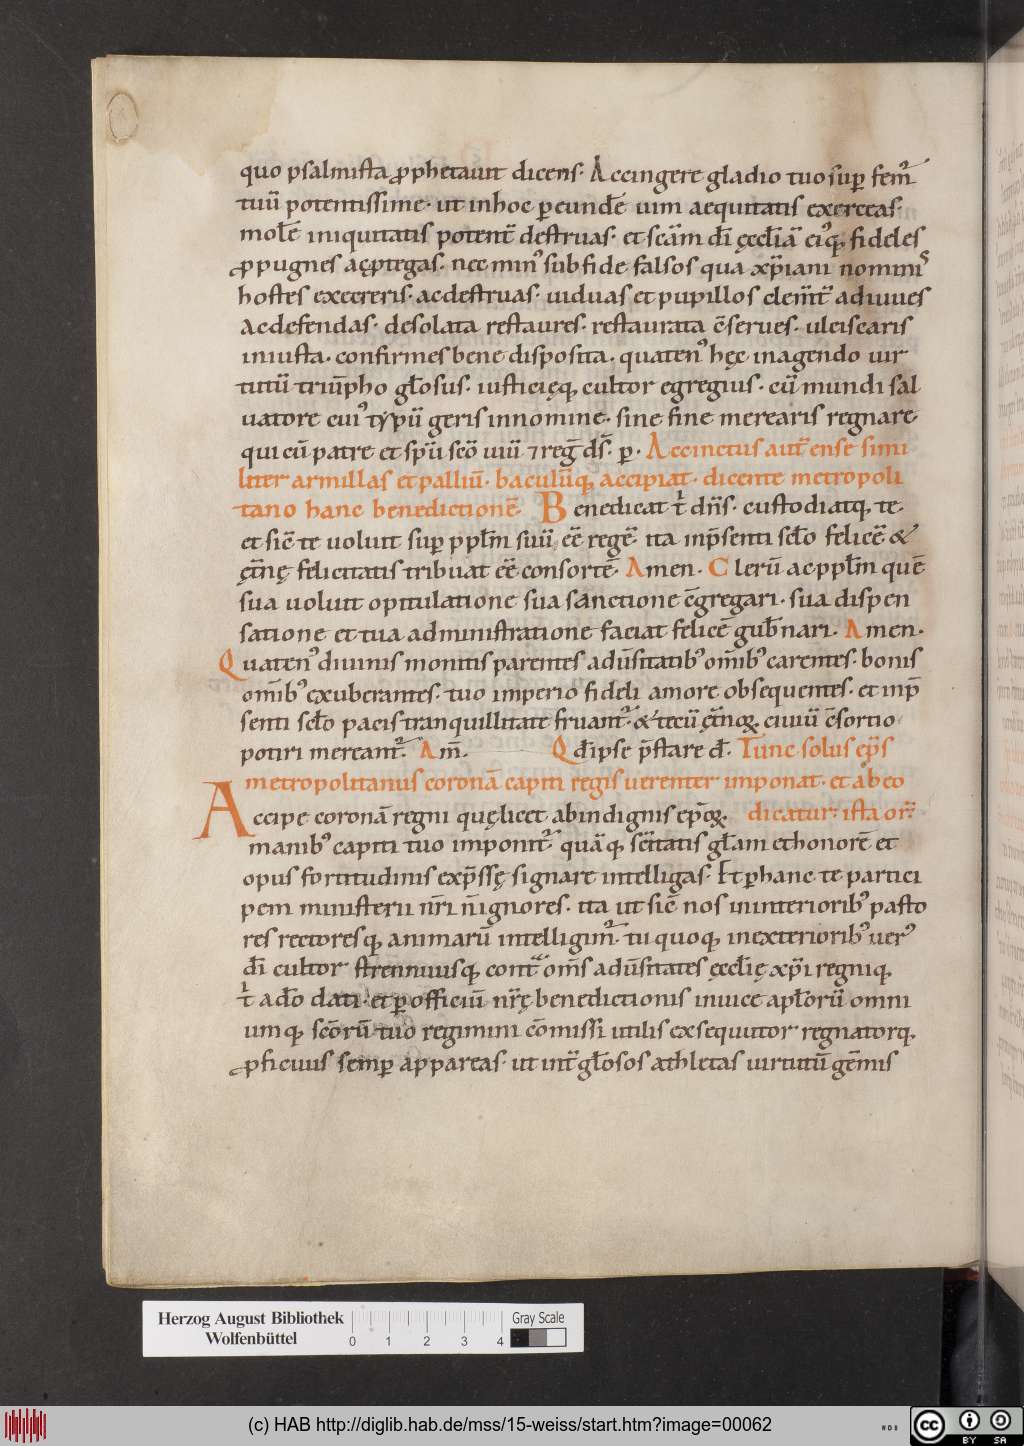 quo psalmista ꝓphetauit dicens· Accingere gladio tuo sup̱ fem̄
tuū potentissime· ut inhoc ꝑeundē uim aequitatis exerceas·
molē iniquitatis potent̄ destruas· et scām dī ęcclīā eiꝰq; fideles
ꝓpugnes acꝓtegas· nec minꝰ subfide falsos qua xp̄iani nominiˢ
hostes execreris· acdestruas· uiduas et pupillos clem̄t̄ adiuues
acdefendas· desolata restaures· restaurata c̄serues· ulciscaris
iniusta· confirmes bene disposita· quatenꝰ hęc inagendo uir
tutū triūpho gl̄osus· iusticięq; cultor egregius· cū mundi sal
uatore cuiꝰ typū geris innomine· sine fine merearis regnare
qui cū patre et sp̄ū scō uiuī ⁊ reg̅ d̄s· p̱· Accinctus aut̄ ense simi
liter armillas et palliū· baculūq; accipiat· dicente metropoli
tano hanc benedictionē· Benedicat t̄ dn̄s· custodiatq; te·
et sic̄ te uoluit sup̱ ppl̄m suū ēē regē· ita inp̄senti scl̄o felicē &
ęt̄nę felicitatis tribuat ēē consortē Amen· Clerū acppl̄m quē
sua uoluit opitulatione sua sanctione c̄gregari· sua dispen
satione et tua administratione faciat felicē gub̄nari· Amen·
Quatenꝰ diuinis monitis parentes adūsitatibꝰ om̄ibꝰ carentes· bonis
om̄ibꝰ exuberantes· tuo imperio fideli amore obsequentes· et inp̄
senti scl̄o pacis tranquillitate fruant̄· & tecū ęt̄noꝝ ciuiū c̄sortio
potiri mereant̄· Am̄· Qd̄ ipse p̄stare d̄· Tunc solus ep̄s
metropolitanus coronā capiti regis uerenter imponat· et ab eo
Accipe coronā regni quę licet abindignis ep̄oꝝ dicatur ista or̄
manibꝰ capiti tuo imponit̄ quāq; sc̄itatis gl̄am ethonorē et
opus fortitudinis exp̄ssę signare intelligas· Et ꝑ hanc te partici
pem ministerii nr̄i ñ ignores· ita ut sic̄ nos ininterioribꝰ pasto
res rectoresq; animarū intelligim̄· tu quoq; inexterioribꝰ uerꝰ
dī cultor strennuusq; cont̄ om̄s adūsitates ęccl̄ię xp̄i regniq;
t̄ ad̄o dati· et ꝑ officiū nr̄ę benedictionis inuice apl̄orū omni
umq; scōrū tuo regimini cōmissi utilis exsequutor regnatorq;
ꝓficuus semp̱ appareas· ut int̄ gl̄osos athletas uirtutū gēmis
Herzog August Bibliothek
Wolfenbüttel
0 1 2 3 4
Gray Scale
(c) HAB http://diglib.hab.de/mss/15-weiss/start.htm?image=00062
cc BY SA